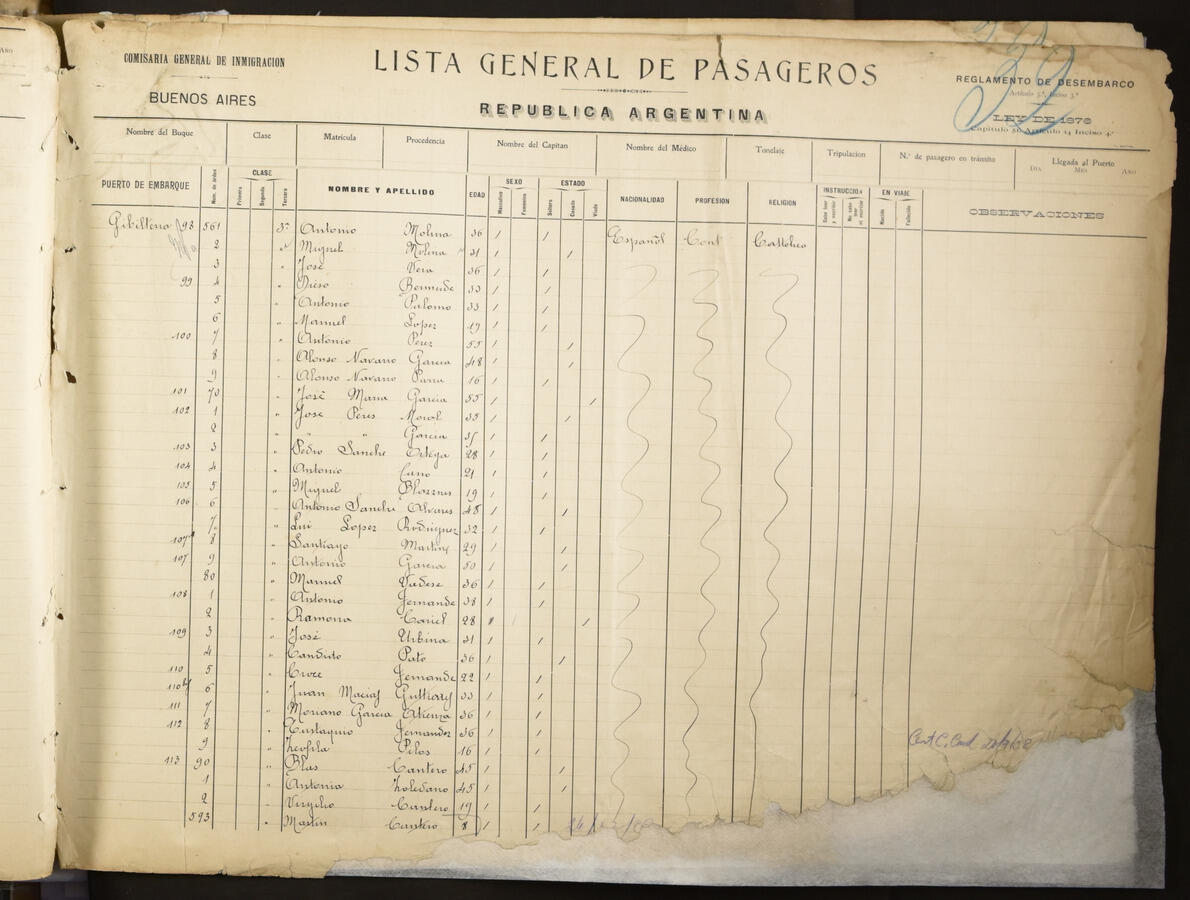 COMISARIA GENERAL DE INMIGRACION
BUENOS AIRES
LISTA GENERAL DE PASAGEROS
REPUBLICA ARGENTINA
REGLAMENTO DE DESEMBARCO
Artículo 5.º, Inciso 3.º
LEY DE 1876
Capítulo 5º, Artículo 14 Inciso 4º
Nombre del Buque Clase Matrícula Procedencia Nombre del Capitan Nombre del Médico Tonelaje Tripulacion N.º de pasagero en tránsito Llegada al Puerto
DIA MES AÑO
PUERTO DE EMBARQUE Núm. de órden CLASE Primera Segunda Tercera NOMBRE Y APELLIDO EDAD SEXO Masculino Femenino ESTADO Soltero Casado Viudo NACIONALIDAD PROFESION RELIGION INSTRUCCION Sabe leer y escribir No sabe leer ni escribir EN VIAJE Nacido Fallecido OBSERVACIONES
98 561 3ª Antonio Molina 36 / / Español Católico
2 " Miguel Molina 31 / /
3 " José Vera 36 / /
99 4 " Diego Bermude 33 / /
5 " Antonio Palomo 33 / /
6 " Manuel Lopez 19 / /
100 7 " Antonio Perez 55 / /
8 " Alonso Navarro Garcia 48 / /
9 " Alonso Navarro Parra 16 / /
101 70 " José Maria Garcia 55 / /
102 1 " Jose Peres 35 / /
2 " " " Garcia 35 / /
103 3 " Pedro Sanche Ortega 28 / /
104 4 " Antonio Cano 21 / /
105 5 " Miguel 19 / /
106 6 " Antonio Sanche Alvares 48 / /
7 " Lui Lopez Rodriguez 32 / /
107 8 " Santiago Martine 29 / /
107 9 " Antonio Garcia 50 / /
80 " Manuel 36 / /
108 1 " Antonio Fernande 38 / /
2 " Ramona 28 /
109 3 " José Urbina 31 / /
4 " Candido Pato 36 / /
110 5 " Fernande 22 / /
110 6 " Juan Macias 33 / /
111 7 " Mariano Garcia Atienza 36 / /
112 8 " Eustaquio Fernandez 36 / /
9 " Pilos 16 / /
113 90 " Blas Cantero 45 / /
1 " Antonia Toledano 45 / /
2 " Virgilio Cantero 19 / /
593 " Martin Cantero 8 / /